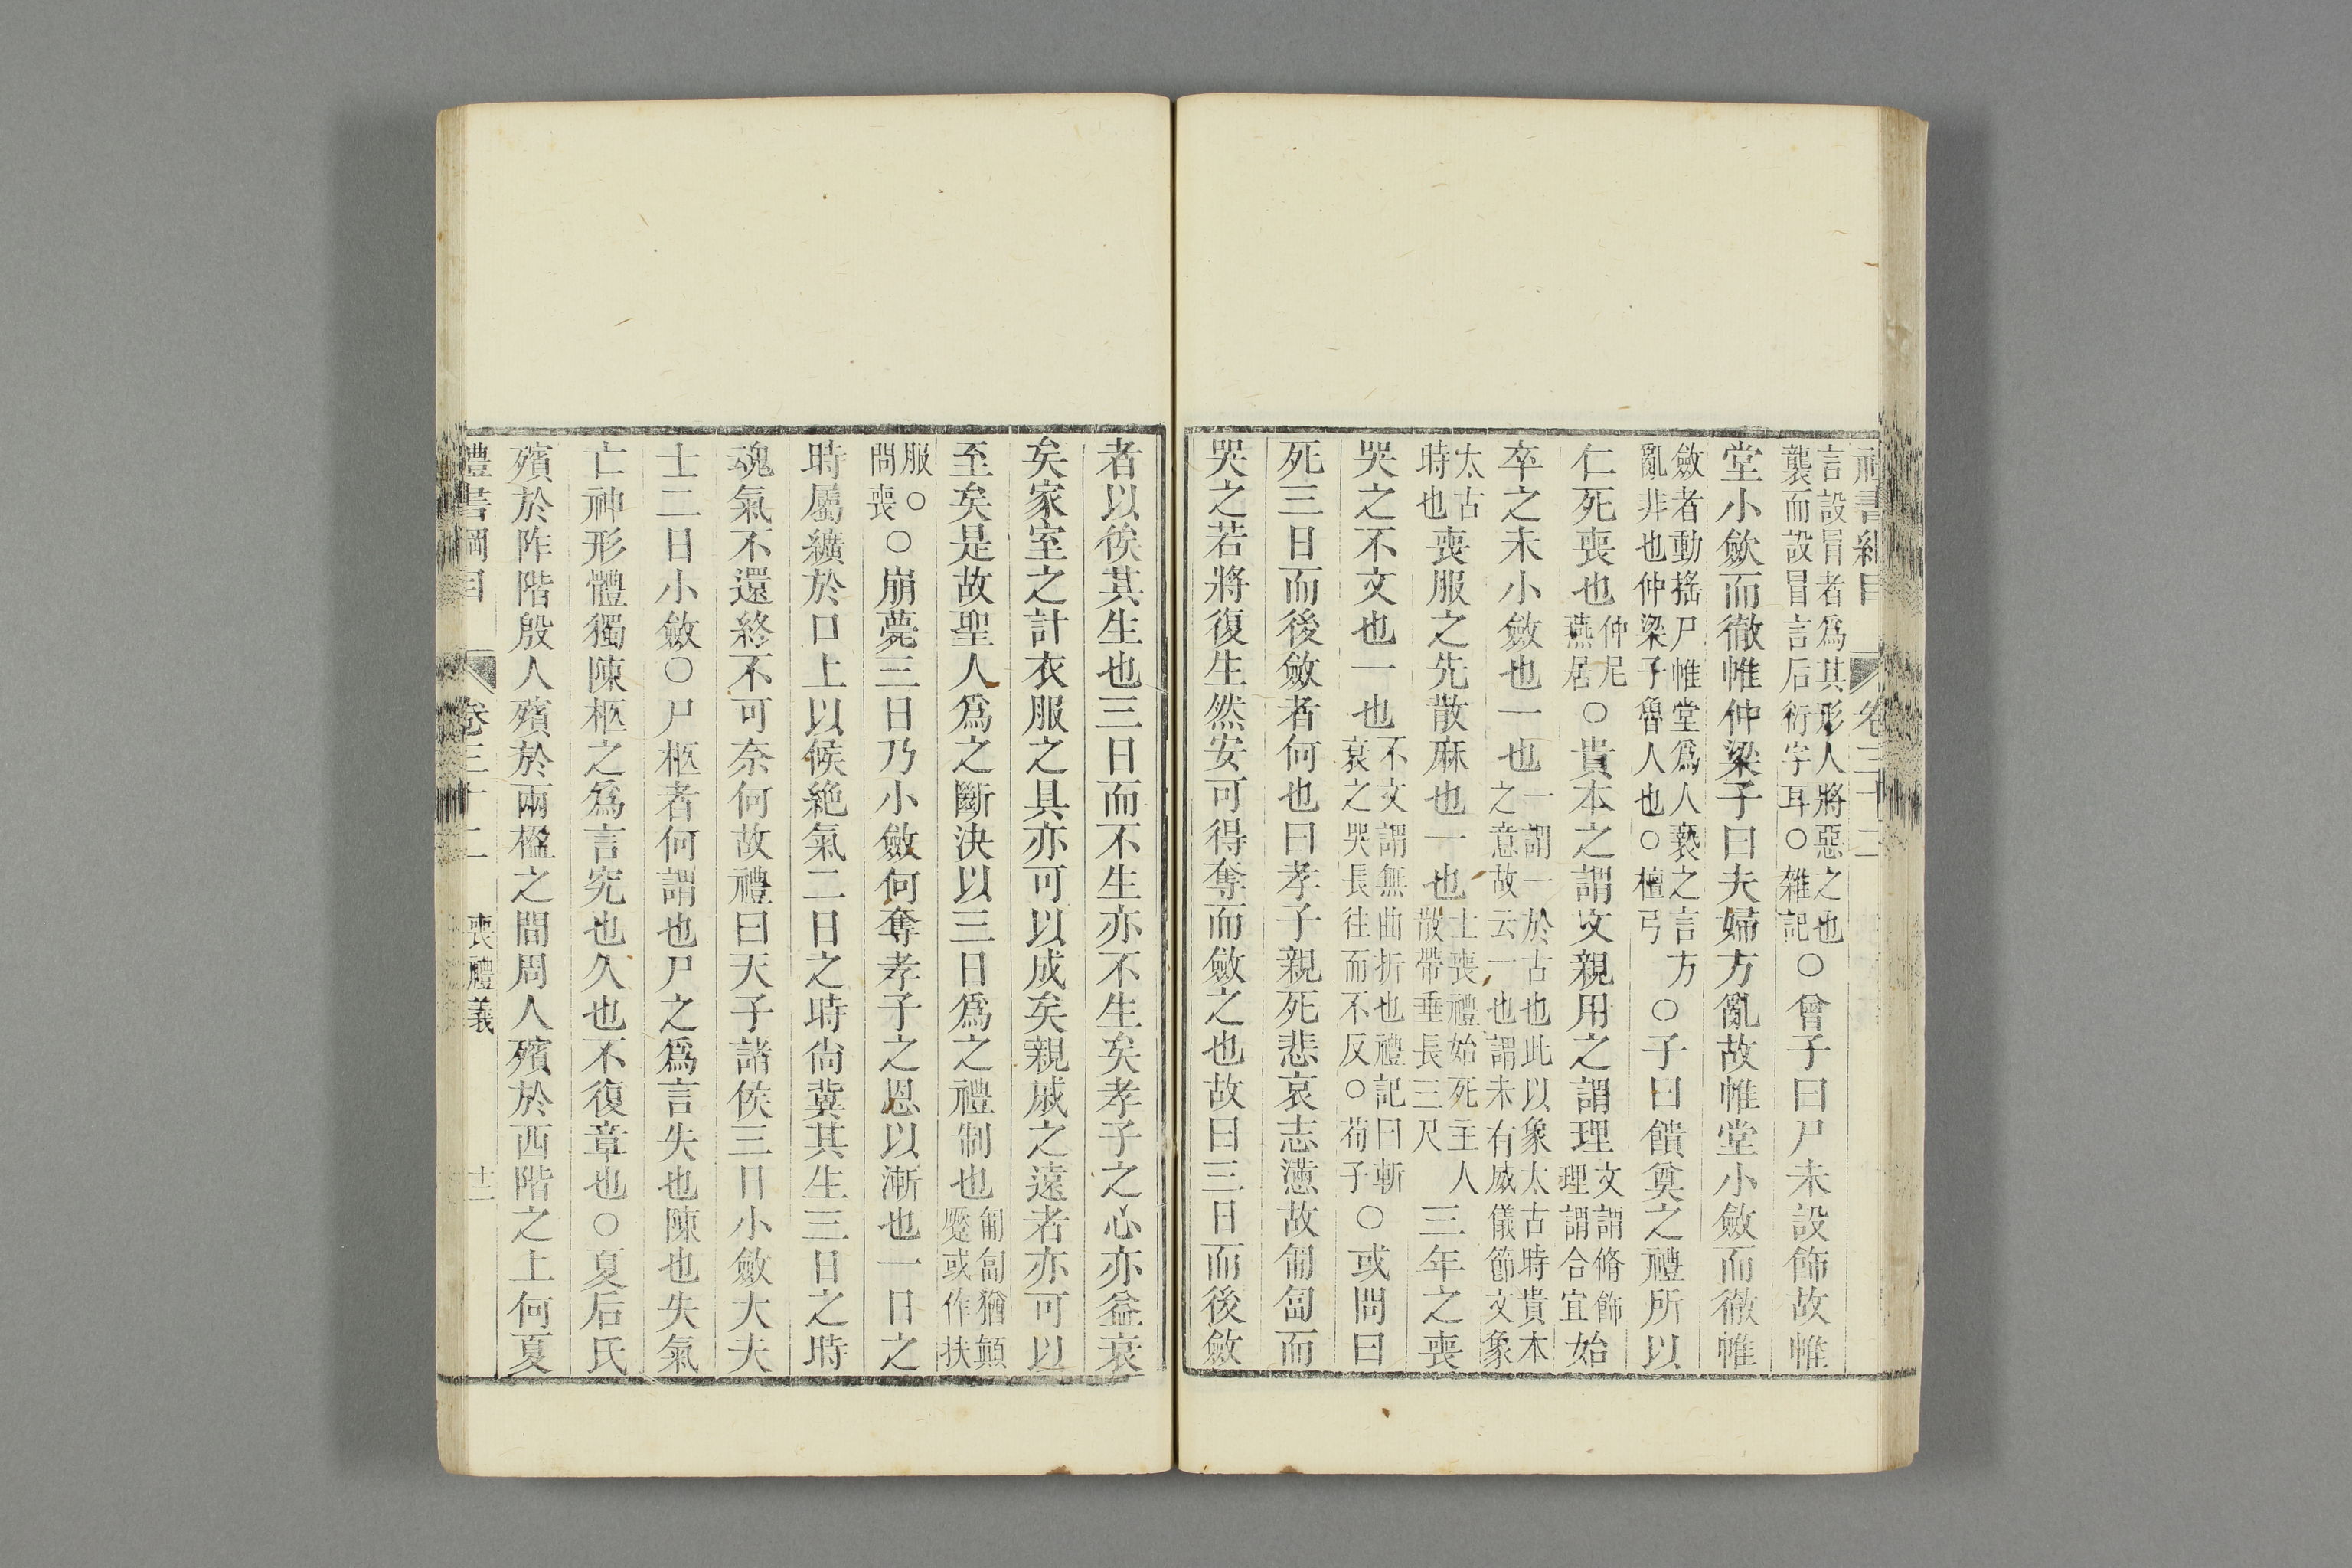 禮書綱目 卷三十二
言設冒者爲其形人將惡之也
襲而設冒言后衍字耳○雜記○曾子曰尸未設飾故帷
堂小斂而徹帷仲梁子曰夫婦方亂故帷堂小斂而徹帷
斂者動搖尸帷堂爲人褻之言方
亂非也仲梁子魯人也○檀弓○子曰饋奠之禮所以
仁死喪也仲尼燕居○貴本之謂文親用之謂理文謂脩飾理謂合宜始
卒之未小斂也一也一謂一於古也此以象太古時貴本之意故云一也謂未有威儀節文象
太古時也喪服之先散麻也一也士喪禮始死主人散帶垂長三尺三年之喪
哭之不文也一也不文謂無曲折也禮記曰斬衰之哭長往而不反○荀子○或問曰
死三日而後斂者何也曰孝子親死悲哀志懣故匍匐而
哭之若將復生然安可得奪而斂之也故曰三日而後斂
者以俟其生也三日而不生亦不生矣孝子之心亦益衰
矣家室之計衣服之具亦可以成矣親戚之遠者亦可以
至矣是故聖人爲之斷決以三日爲之禮制也匍匐猶顛蹷或作扶
服○問喪○崩薨三日乃小斂何奪孝子之恩以漸也一日之
時屬纊於口上以候絶氣二日之時尚冀其生三日之時
魂氣不還終不可奈何故禮曰天子諸侯三日小斂大夫
士二日小斂○尸柩者何謂也尸之爲言失也陳也失氣
亡神形體獨陳柩之爲言究也久也不復章也○夏后氏
殯於阼階殷人殯於兩楹之間周人殯於西階之上何夏
禮書綱目 卷三十二 喪禮義 十二